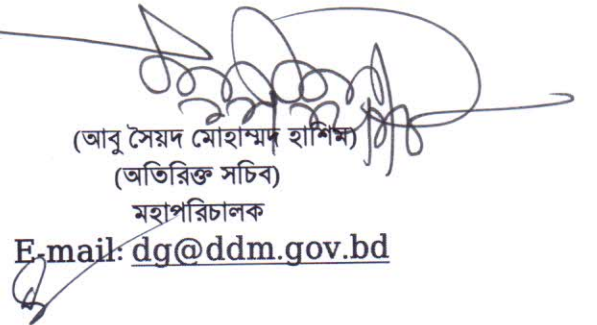 (আবু সৈয়দ মোহাম্মদ হাশিম)
(অতিরিক্ত সচিব)
মহাপরিচালক
E-mail: dg@ddm.gov.bd